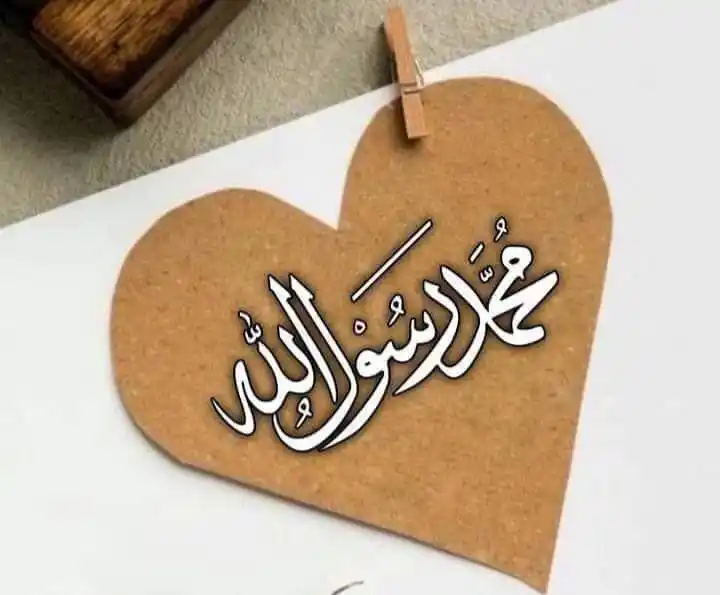 مُحَمَّد رَسُوْلُ اللّٰه